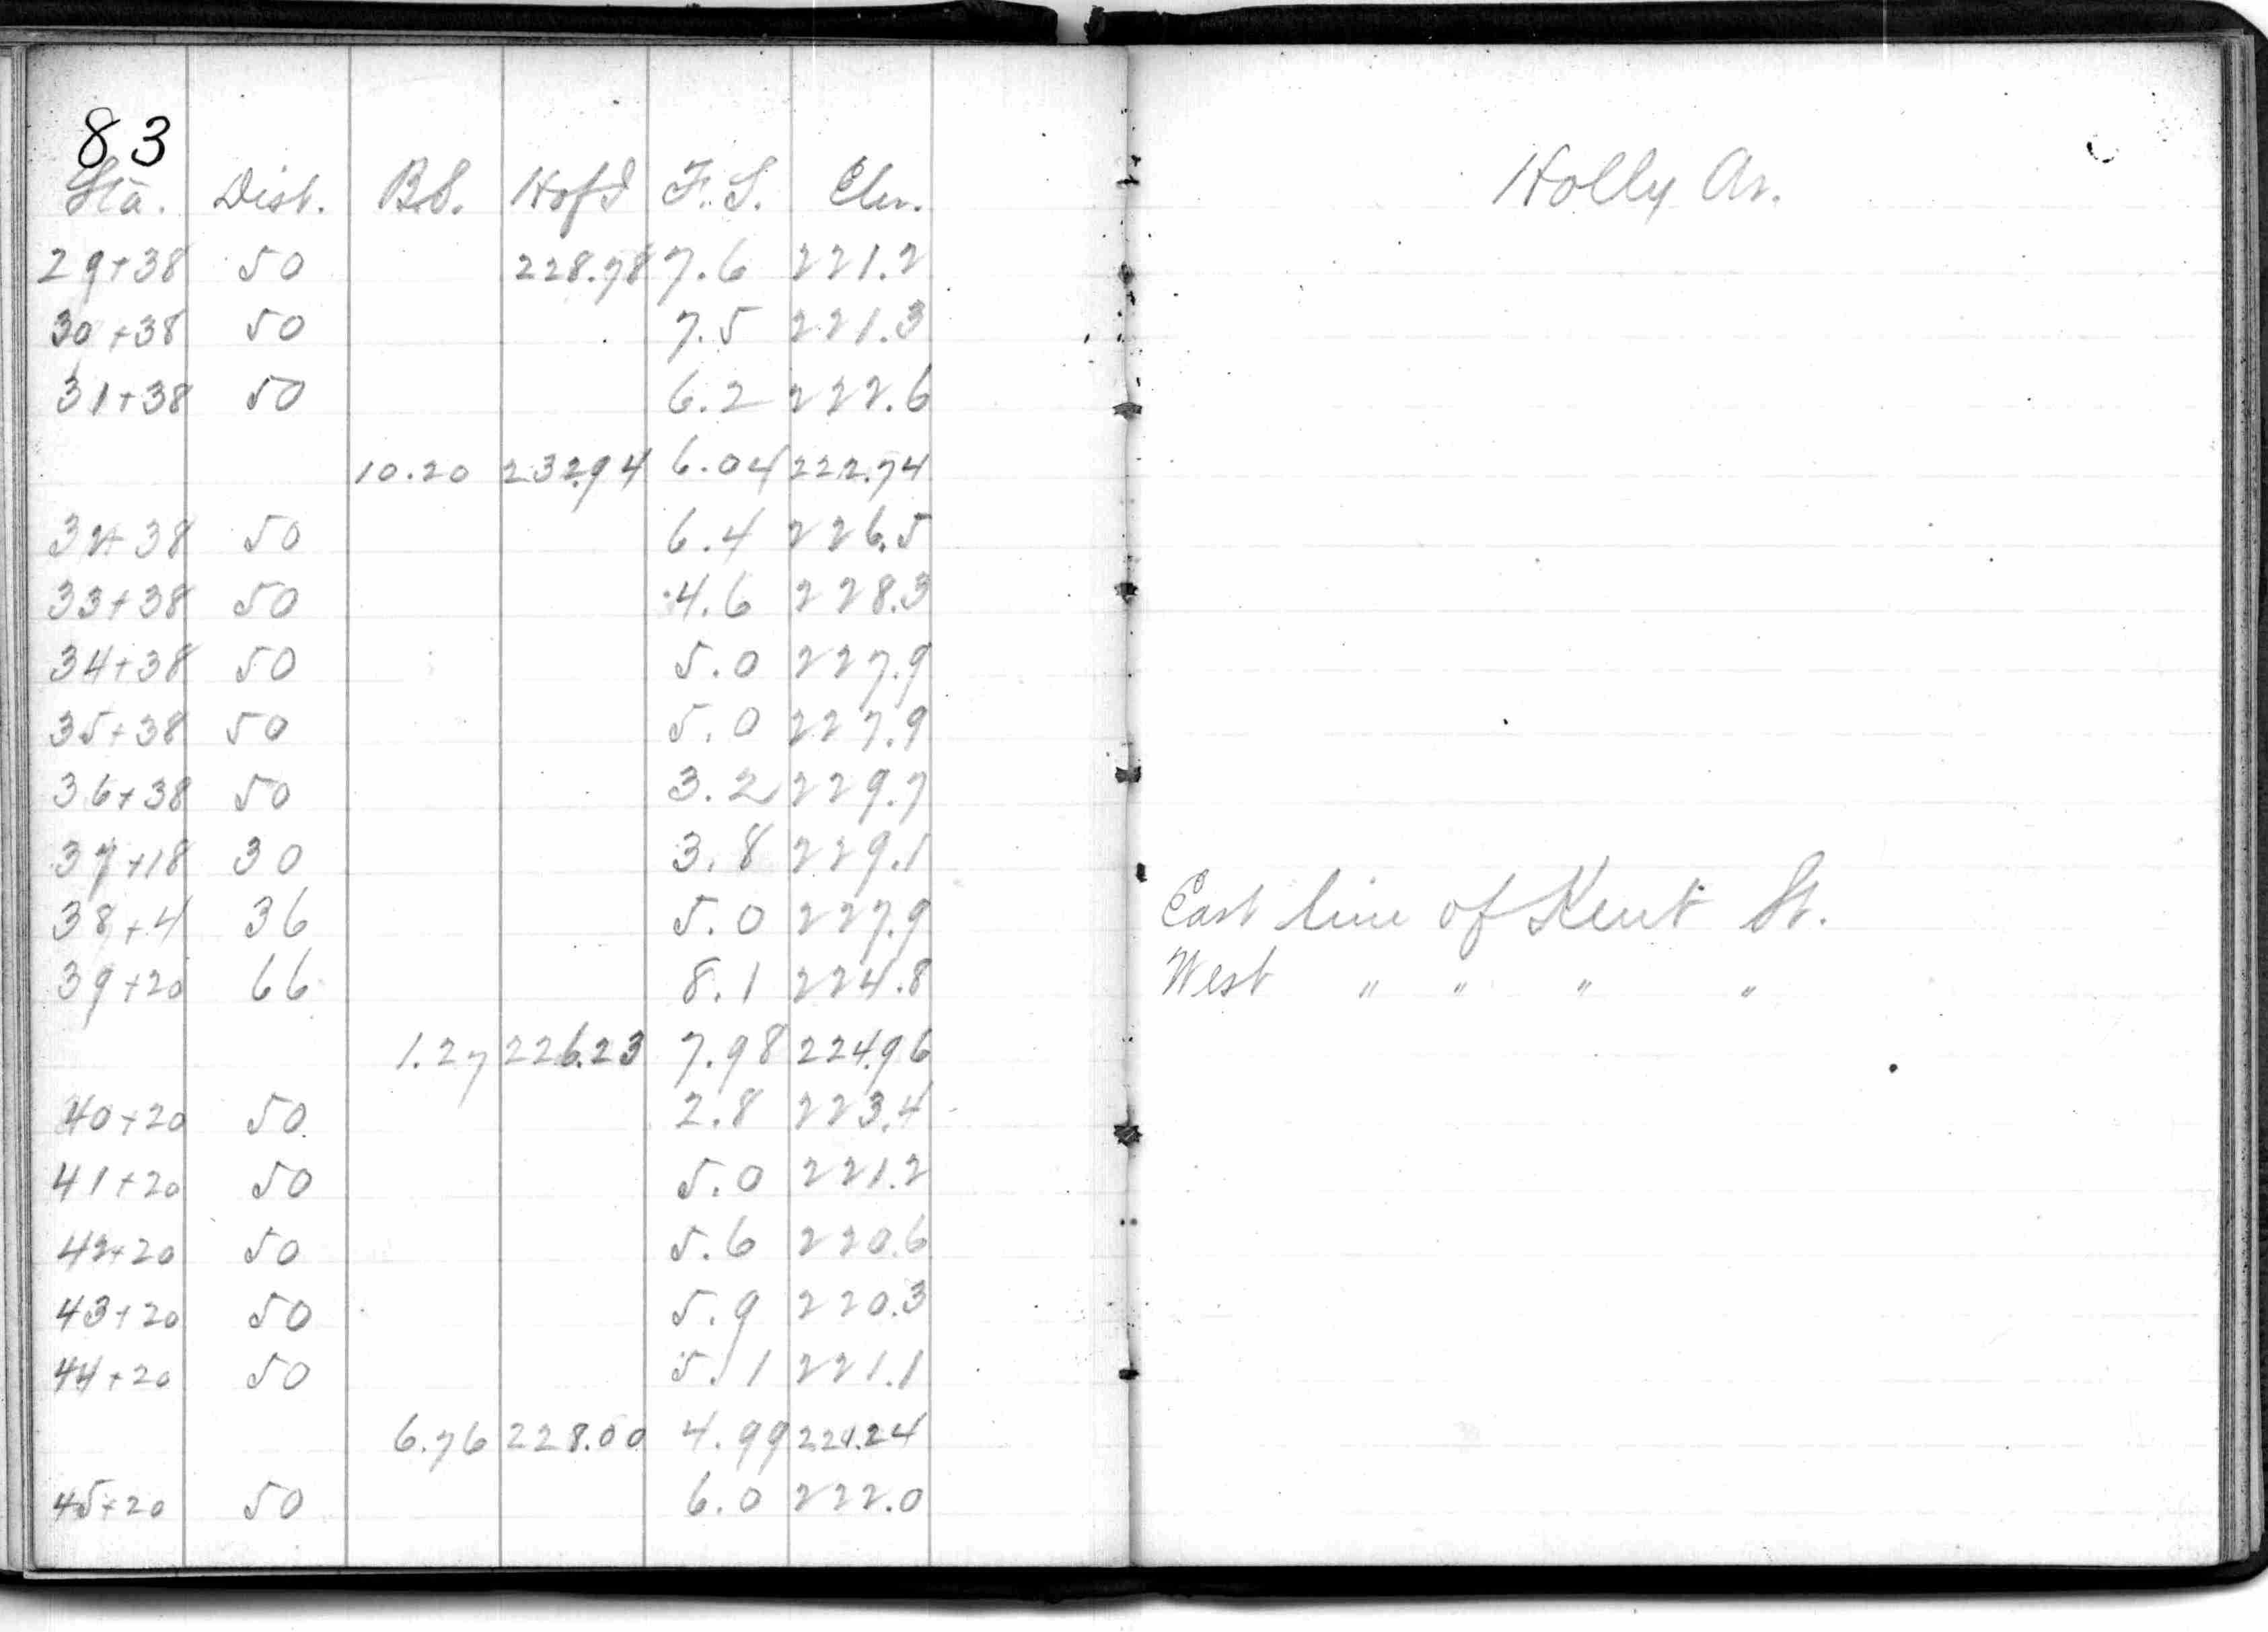 83
Sta. Dist. B.S. H of I F.S. Elev.
29+38 50 228.78 7.6 221.2
30+38 50 7.5 221.3
31+38 50 6.2 222.6
10.20 232.94 6.04 222.74
32+38 50 6.4 226.5
33+38 50 4.6 228.3
34+38 50 5.0 227.9
35+38 50 5.0 227.9
36+38 50 3.2 229.7
37+18 30 3.8 229.1
38+4 36 5.0 227.9
39+20 66 8.1 224.8
1.27 226.23 7.98 224.96
40+20 50 2.8 223.4
41+20 50 5.0 221.2
42+20 50 5.6 220.6
43+20 50 5.9 220.3
44+20 50 5.1 221.1
6.76 228.00 4.99 221.24
45+20 50 6.0 222.0
Holly Av.
East line of Kent St.
West " " " "